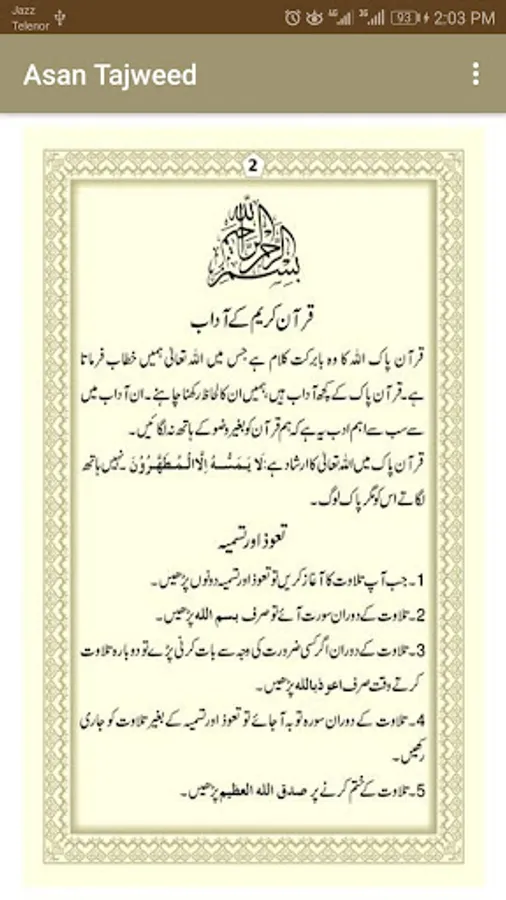 Jazz
Telenor
4G 3G 93 2:03 PM
Asan Tajweed
2
بسم الله الرحمن الرحيم
قرآن کریم کے آداب
قرآن پاک اللہ کا وہ بابرکت کلام ہے جس میں اللہ تعالیٰ ہمیں خطاب فرماتا
ہے۔قرآن پاک کے کچھ آداب ہیں، ہمیں ان کا لحاظ رکھنا چاہئے۔ ان آداب میں
سے سب سے اہم ادب یہ ہے کہ ہم قرآن کو بغیر وضو کے ہاتھ نہ لگائیں۔
قرآن پاک میں اللہ تعالیٰ کا ارشاد ہے: لَا يَمَسُّهٗ اِلَّا الْمُطَهَّرُوْنَ ۔ نہیں ہاتھ
لگاتے اس کو مگر پاک لوگ۔
تعوذ اور تسمیہ
1۔جب آپ تلاوت کا آغاز کریں تو تعوذ اور تسمیہ دونوں پڑھیں۔
2۔تلاوت کے دوران سورت آئے تو صرف بسم الله پڑھیں۔
3۔تلاوت کے دوران اگر کسی ضرورت کی وجہ سے بات کرنی پڑے تو دوبارہ تلاوت
کرتے وقت صرف اعوذ بالله پڑھیں۔
4۔تلاوت کے دوران سورہ توبہ آ جائے تو تعوذ اور تسمیہ کے بغیر تلاوت کو جاری
رکھیں۔
5۔تلاوت کے ختم کرنے پر صدق الله العظيم پڑھیں۔